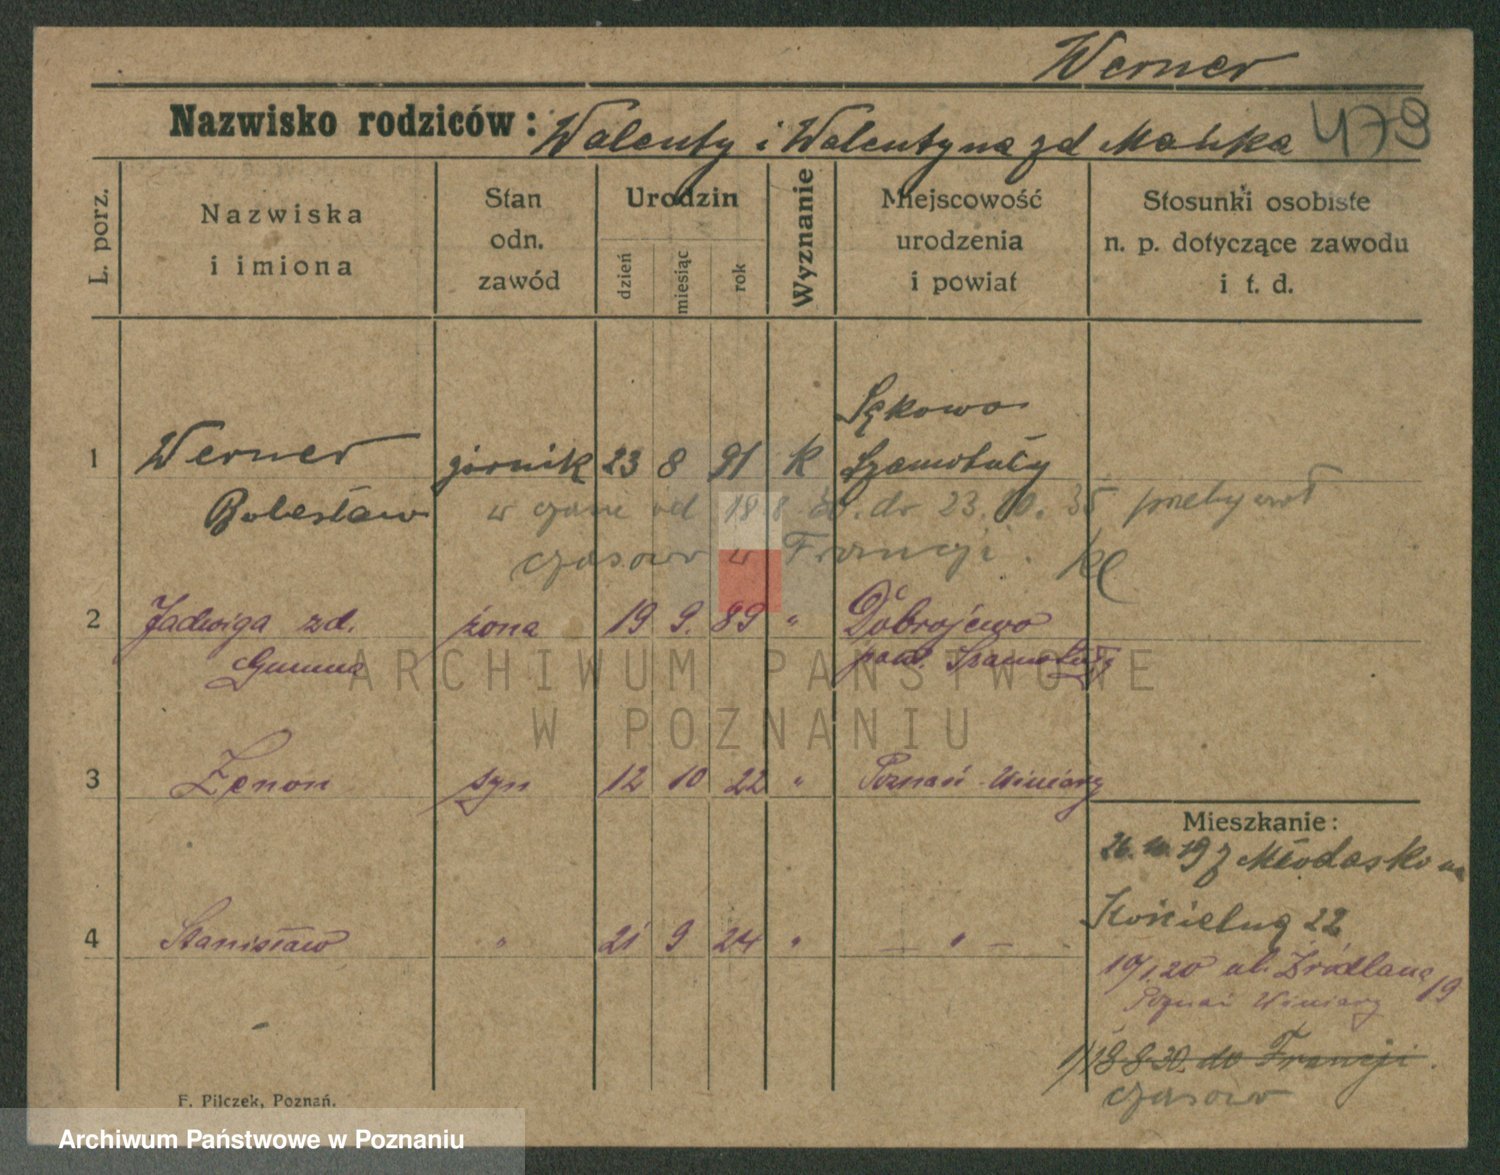 Werner
Nazwisko rodziców: Walenty i Walentyna zd Mańka
479
L. porz.
Nazwiska i imiona
Stan odn. zawód
Urodzin
dzień
miesiąc
rok
Wyznanie
Miejscowość urodzenia i powiat
Stosunki osobiste n. p. dotyczące zawodu i t. d.
1 Werner Bolesław górnik 23 8 91 k Sękowo Szamotuły
w czasie od 18 8 30. do 23.10.35 przebywał
czasowo w Francji.
2 Jadwiga zd. żona 19 9. 89 " Dobrojewo pow. Szamotuły
3 Zenon syn 12 10 22 " Poznań-Winiary
4 Stanisław " 21 9 24 " — " —
Mieszkanie:
26.10.19 z Młodasko na
Kościelną 22
19/1.20 ul. Źródlana 19
Poznań Winiary
18.8.30. do Francji.
czasowo
F. Pilczek, Poznań.
ARCHIWUM PAŃSTWOWE
W POZNANIU
Archiwum Państwowe w Poznaniu